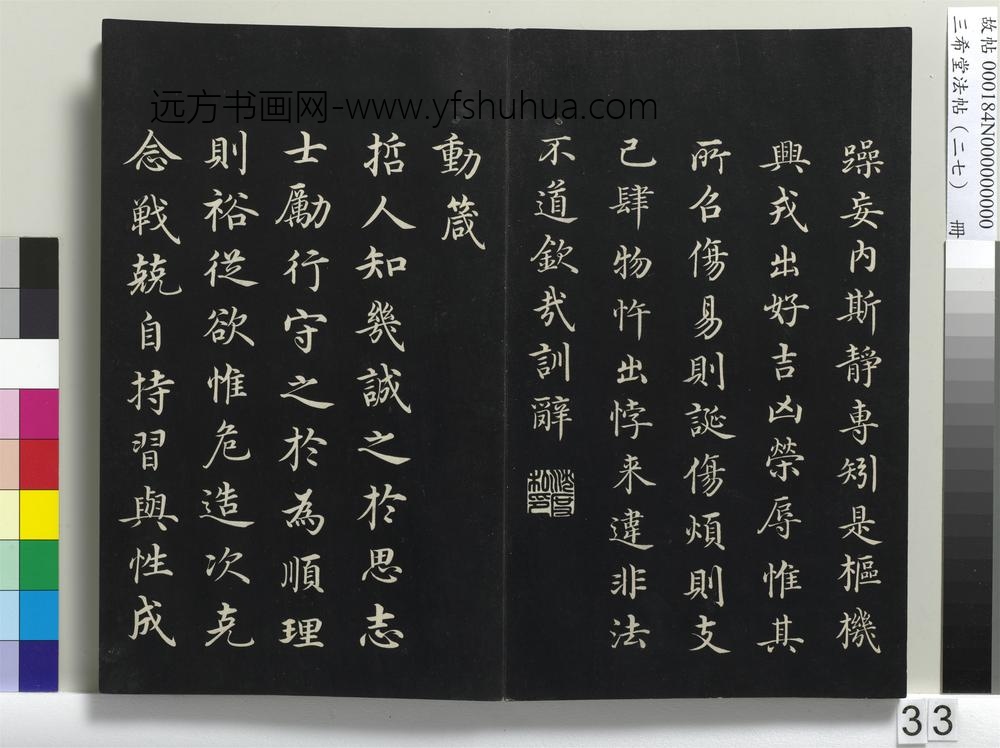 躁妄内斯静専矧是樞機
興戎出好吉凶榮辱惟其
所召傷易則誕傷煩則支
己肆物忤出悖来違非法
不道欽哉訓辭
動箴
哲人知幾誠之於思志
士勵行守之於為順理
則裕從欲惟危造次克
念戦兢自持習與性成
远方书画网-www.yfshuhua.com
故帖 000184N000000000
三希堂法帖（二七） 冊
33